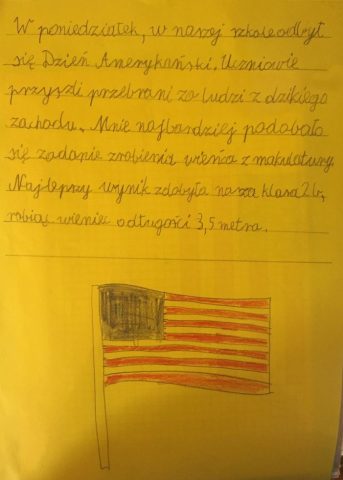 W poniedziałek, w naszej szkole odbył
się Dzień Amerykański. Uczniowie
przyszli przebrani za ludzi z dzikiego
zachodu. Mnie najbardziej podobało
się zadanie zrobienia wieńca z makulatury.
Najlepszy wynik zdobyła nasza klasa 2b,
robiąc wieniec o długości 3,5 metra.